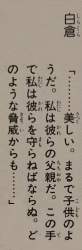 白倉
「………美しい。まるで子供のよ
うだ。私は彼らの父親だ。この手
で私は彼らを守らねばならぬ。ど
のような脅威からも……」